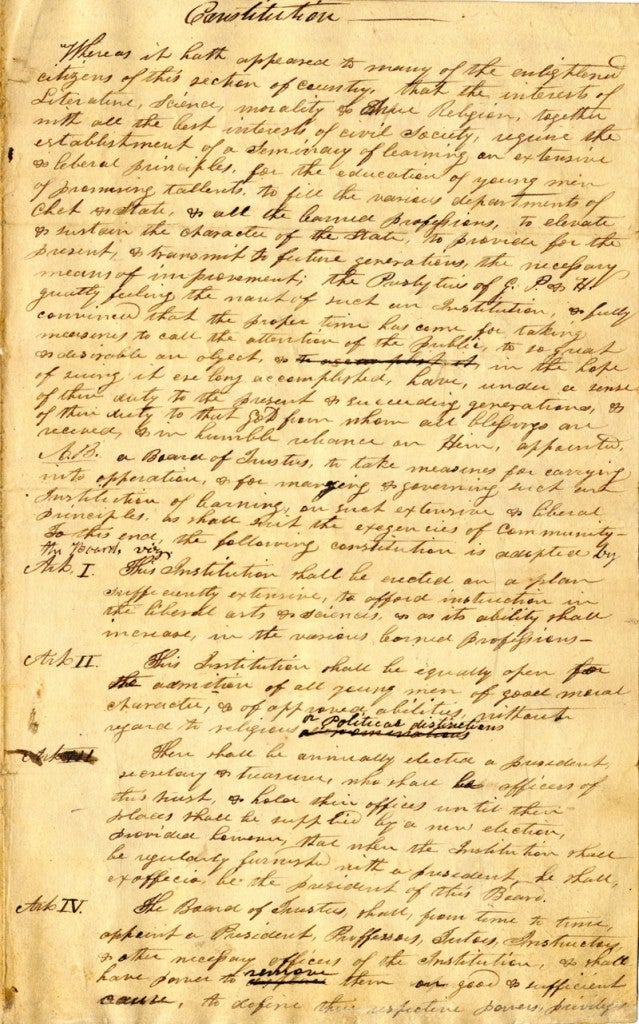 Constitution
Whereas it hath appeared to many of the enlightened
citizens of this section of country, that the interests of
Literature, Science, morality & true Religion, together
with all the best interests of civil Society, require the
establishment of a Seminary of learning on extensive
& liberal principles, for the education of young men
of promising tallents, to fill the various departments of
Chch & State, & all the learned professions, to elevate
& sustain the character of the State, to provide for the
present, & transmit to future generations, the necessary
means of improvement; the Prsbytrie of G. P & H
greatly feeling the want of such an Institution, & fully
convinced that the proper time has come for taking
measures to call the attention of the public, to so great
& desirable an object, & to accomplish it, in the hope
of seeing it ere long accomplished, have, under a sense
of their duty to the present & succeeding generations, &
of their duty to that God from whom all blessings are
received, & in humble reliance on Him, appointed,
A.B. a Board of Trustus, to take measures for carrying
into opporation, & for manging & governing such an
Institution of learning, on such extensive & liberal
principles, as shall suit the exegencies of Community—
To this end, the following constitution is adopted by
the Board, viz
Art. I. This Institution shall be erected on a plan
sufficiently extensive, to afford instruction in
the liberal arts & sciences, & as its ability shall
increase, in the various learned professions—
Art II. This Institution shall be equally open for
the admition of all young men of good moral
character, & of approved abilities, without
regard to religious or Political distinctions
Art III There shall be annually elected a president,
secretary & treasurer, who shall be officers of
this trust, & hold their offices until their
places shall be supplied by a new election,
provided however, that when the Institution shall
be regularly furnished with a president he shall,
ex officio be the president of this Board.
Art IV. The Board of Trustus, shall, from time to time,
appoint a President, Proffessors, Tutors, Instructors,
& other necessary officers of the Institution, & shall
have power to remove them on good & sufficient
cause, to define their respective powers, privileges